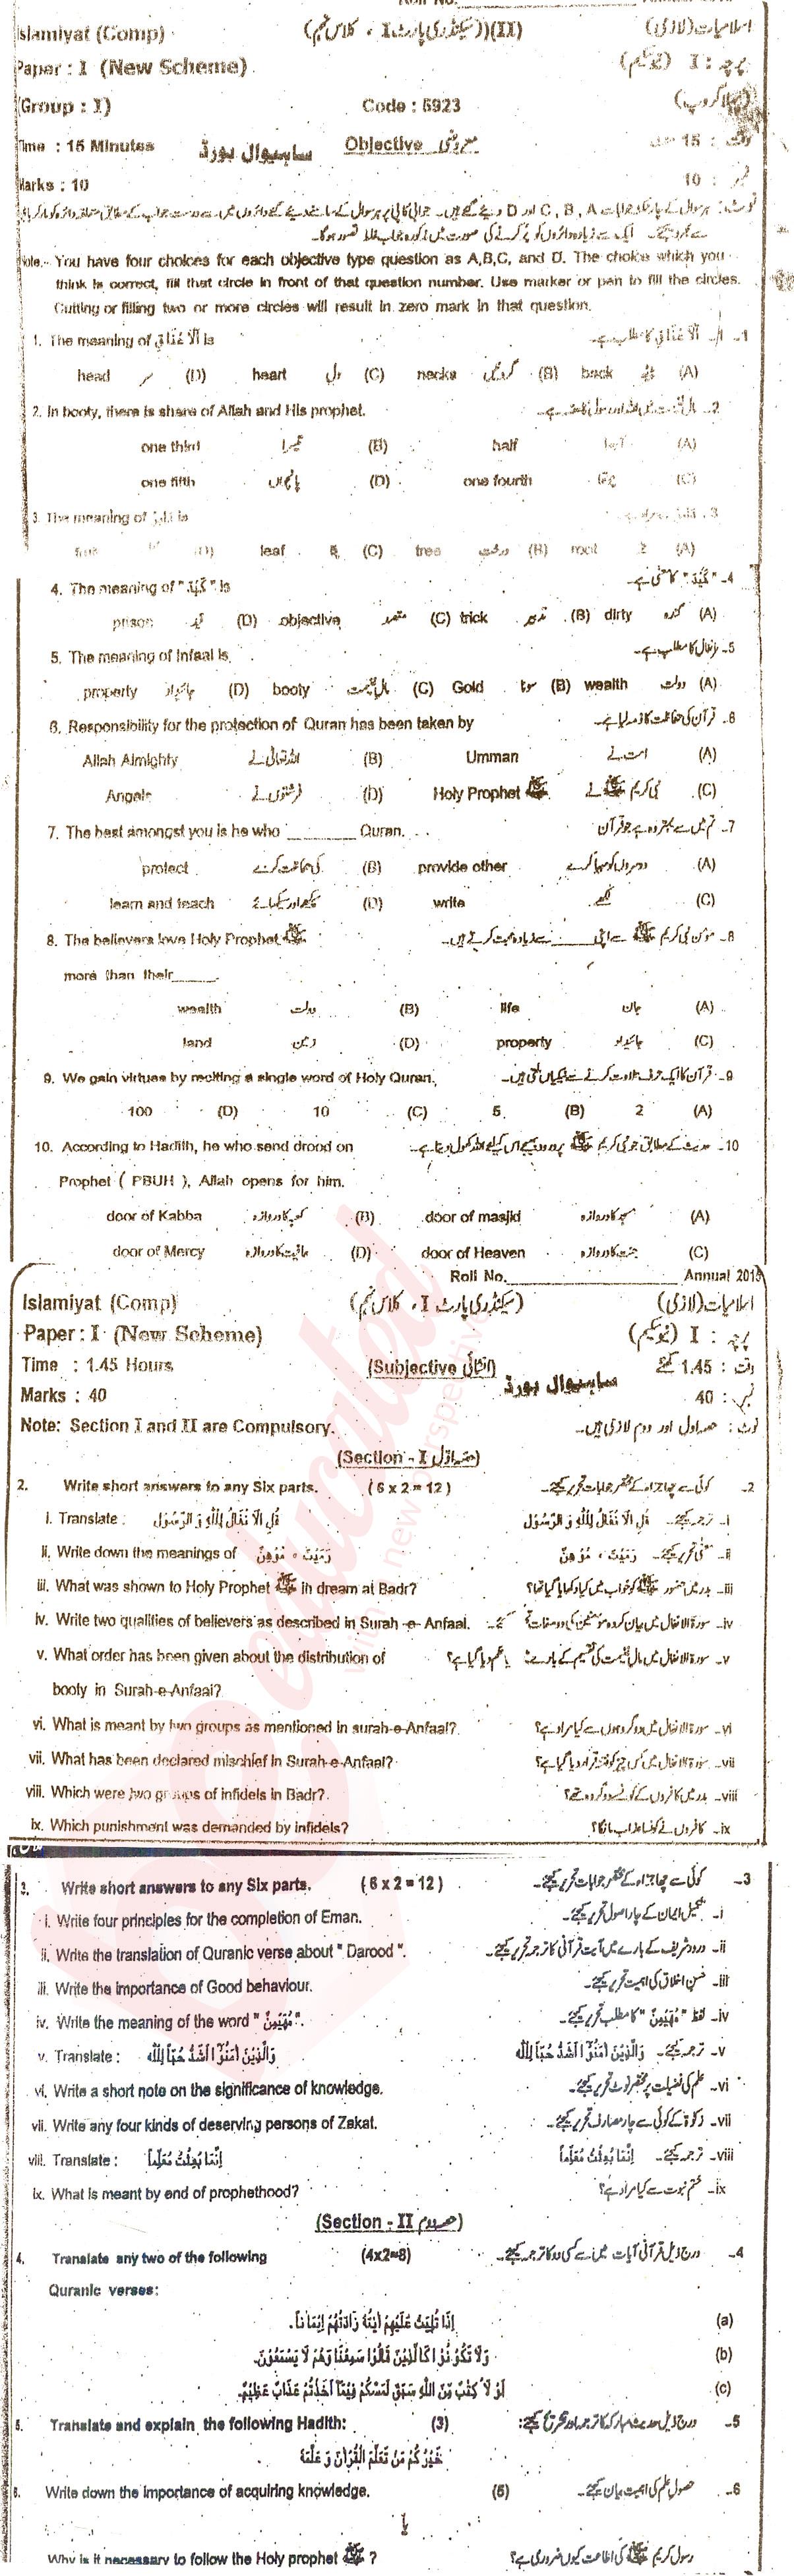 Islamiyat (Comp) (سیکنڈری پارٹ I ، کلاس نہم)(II) اسلامیات (لازمی)
Paper : I (New Scheme) پرچہ : I (نیو سکیم)
(Group : I) Code : 5923 (پہلا گروپ)
Time : 15 Minutes ساہیوال بورڈ Objective معروضی وقت : 15
Marks : 10 نمبر : 10
Note:- You have four choices for each objective type question as A,B,C, and D. The choice which you
think is correct, fill that circle in front of that question number. Use marker or pen to fill the circles.
Cutting or filling two or more circles will result in zero mark in that question.
1. The meaning of is -1
head سر (D) heart دل (C) necks گردنیں (B) back (A)
2. In booty, there is share of Allah and His prophet. -2
one third تیسرا (B) half آدھا (A)
one fifth پانچواں (D) one fourth چوتھا (C)
3. The meaning of is
(D) leaf (C) tree درخت (B) root (A)
4. The meaning of " کَیْدَ " is 4- "کَیْدَ" کا معنی ہے۔
prison قید (D) objective مقصد (C) trick تدبیر (B) dirty گندہ (A)
5. The meaning of Infaal is 5- انفال کا مطلب ہے۔
property جائیداد (D) booty مال غنیمت (C) Gold سونا (B) wealth دولت (A)
6. Responsibility for the protection of Quran has been taken by 6- قرآن کی حفاظت کا ذمہ لیا ہے۔
Allah Almighty اللہ تعالٰی نے (B) Umman امت نے (A)
Angels فرشتوں نے (D) Holy Prophet ﷺ نبی کریم ﷺ نے (C)
7. The best amongst you is he who ________ Quran. 7- تم میں سے بہتر وہ ہے جو قرآن
protect کی حفاظت کرے (B) provide other دوسروں کو مہیا کرے (A)
learn and teach سیکھے اور سکھائے (D) write لکھے (C)
8. The believers love Holy Prophet ﷺ 8- مومن نبی کریم ﷺ سے اپنی ____ سے زیادہ محبت کرتے ہیں۔
more than their_____.
wealth دولت (B) life جان (A)
land زمین (D) property جائیداد (C)
9. We gain virtues by reciting a single word of Holy Quran. 9- قرآن کا ایک حرف تلاوت کرنے سے نیکیاں ملتی ہیں۔
100 (D) 10 (C) 5 (B) 2 (A)
10. According to Hadith, he who send drood on 10- حدیث کے مطابق جو نبی کریم ﷺ پر درود بھیجے اس کیلئے اللہ کھول دیتا ہے۔
Prophet ( PBUH ), Allah opens for him.
door of Kabba کعبہ کا دروازہ (B) door of masjid مسجد کا دروازہ (A)
door of Mercy عافیت کا دروازہ (D) door of Heaven جنت کا دروازہ (C)
Roll No.____________ Annual 2015
Islamiyat (Comp) (سیکنڈری پارٹ I ، کلاس نہم) اسلامیات (لازمی)
Paper : I (New Scheme) پرچہ : I (نیو سکیم)
Time : 1.45 Hours (Subjective انشائی) وقت : 1.45 گھنٹے
Marks : 40 ساہیوال بورڈ نمبر : 40
Note: Section I and II are Compulsory. نوٹ : حصہ اول اور دوم لازمی ہیں۔
(Section - I حصہ اول)
2. Write short answers to any Six parts. ( 6 x 2 = 12 ) 2- کوئی سے چھ اجزاء کے مختصر جوابات تحریر کیجئے۔
i. Translate : قُلِ الْاَنْفَالُ لِلّٰهِ وَالرَّسُوْلِ i- ترجمہ کیجئے۔ قُلِ الْاَنْفَالُ لِلّٰهِ وَالرَّسُوْلِ
ii. Write down the meanings of رَمَیْتَ ، مُوْهِنُ ii- معنی تحریر کیجئے۔ رَمَیْتَ ، مُوْهِنُ
iii. What was shown to Holy Prophet ﷺ in dream at Badr? iii- بدر میں حضور ﷺ کو خواب میں کیا دکھایا گیا تھا؟
iv. Write two qualities of believers as described in Surah -e- Anfaal. iv- سورۃ الانفال میں بیان کردہ مومنین کی دو صفات
v. What order has been given about the distribution of v- سورۃ الانفال میں مال غنیمت کی تقسیم کے بارے حکم دیا گیا ہے؟
booty in Surah-e-Anfaal?
vi. What is meant by two groups as mentioned in surah-e-Anfaal? vi- سورۃ الانفال میں دو گروہوں سے کیا مراد ہے؟
vii. What has been declared mischief in Surah-e-Anfaal? vii- سورۃ الانفال میں کس چیز کو فتنہ قرار دیا گیا ہے؟
viii. Which were two groups of infidels in Badr? viii- بدر میں کافروں کے کونسے دو گروہ تھے؟
ix. Which punishment was demanded by infidels? ix- کافروں نے کونسا عذاب مانگا؟
3. Write short answers to any Six parts. ( 6 x 2 = 12 ) 3- کوئی سے چھ اجزاء کے مختصر جوابات تحریر کیجئے۔
i. Write four principles for the completion of Eman. i- تکمیل ایمان کے چار اصول تحریر کیجئے۔
ii. Write the translation of Quranic verse about " Darood ". ii- درود شریف کے بارے میں آیت قرآنی کا ترجمہ تحریر کیجئے۔
iii. Write the importance of Good behaviour. iii- حسن اخلاق کی اہمیت تحریر کیجئے۔
iv. Write the meaning of the word " مُهَیْمِنٌ ". iv- لفظ " مُهَیْمِنٌ " کا مطلب تحریر کیجئے۔
v. Translate : وَالَّذِیْنَ اٰمَنُوْٓا اَشَدُّ حُبًّا لِلّٰهِ v- ترجمہ کیجئے۔ وَالَّذِیْنَ اٰمَنُوْٓا اَشَدُّ حُبًّا لِلّٰهِ
vi. Write a short note on the significance of knowledge. vi- علم کی فضیلت پر مختصر نوٹ تحریر کیجئے۔
vii. Write any four kinds of deserving persons of Zakat. vii- زکوٰۃ کے کوئی سے چار مصارف تحریر کیجئے۔
viii. Translate : اِنَّمَا بُعِثْتُ مُعَلِّماً viii- ترجمہ کیجئے۔ اِنَّمَا بُعِثْتُ مُعَلِّماً
ix. What is meant by end of prophethood? ix- ختم نبوت سے کیا مراد ہے؟
(Section - II حصہ دوم)
4. Translate any two of the following (4x2=8) 4- درج ذیل قرآنی آیات میں سے کسی دو کا ترجمہ کیجئے۔
Quranic verses:
اِذَا تُلِیَتْ عَلَیْهِمْ اٰیٰتُهٗ زَادَتْهُمْ اِیْمَاناً. (a)
وَلَا تَکُوْنُوْا کَالَّذِیْنَ قَالُوْا سَمِعْنَا وَهُمْ لَا یَسْمَعُوْنَ. (b)
لَوْ لَا کِتٰبٌ مِّنَ اللّٰهِ سَبَقَ لَمَسَّکُمْ فِیْمَآ اَخَذْتُمْ عَذَابٌ عَظِیْمٌ. (c)
5. Translate and explain the following Hadith: (3) 5- درج ذیل حدیث مبارکہ کا ترجمہ اور تشریح کیجئے:
خَیْرُکُمْ مَنْ تَعَلَّمَ الْقُرْاٰنَ وَ عَلَّمَهٗ
6. Write down the importance of acquiring knowledge. (5) 6- حصول علم کی اہمیت بیان کیجئے۔
یا
Why is it necessary to follow the Holy prophet ﷺ ? رسول کریم ﷺ کی اطاعت کیوں ضروری ہے؟